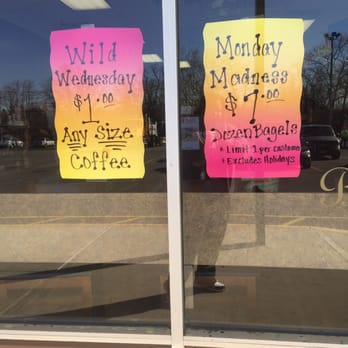 Wild
Wednesday
$1.00
Any Size
Coffee
Monday
Madness
$7.00
Dozen Bagels
* Limit 1 per customer
* Excludes Holidays